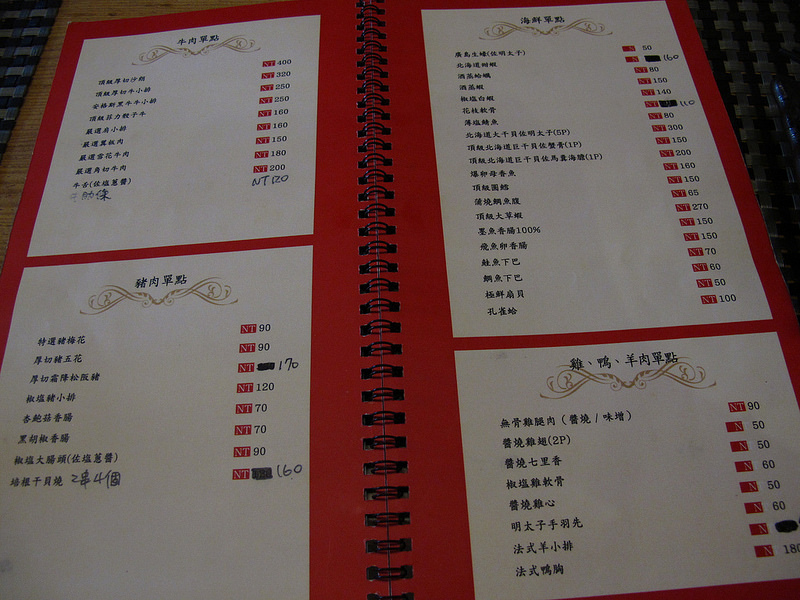 牛肉單點
頂級厚切沙朗 NT 400
頂級厚切牛小排 NT 320
安格斯黑牛牛小排 NT 250
頂級菲力骰子牛 NT 250
嚴選肩小排 NT 160
嚴選翼板肉 NT 160
嚴選雪花牛肉 NT 150
嚴選角切牛肉 NT 180
牛舌(佐塩蔥醬) NT 200
肋條 NT 120
豬肉單點
特選豬梅花 NT 90
厚切豬五花 NT 90
厚切霜降松阪豬 NT 170
椒塩豬小排 NT 120
杏鮑菇香腸 NT 70
黑胡椒香腸 NT 70
椒塩大腸頭(佐塩蔥醬) NT 90
培根干貝燒 2串4個 NT 160
海鮮單點
廣島生蠔(佐明太子) N 50
北海道甜蝦 N 160
酒蒸蛤蠣 NT 80
酒蒸蝦 NT 150
椒塩白蝦 NT 140
花枝軟骨 NT 110
薄塩鯖魚 NT 80
北海道大干貝佐明太子(5P) NT 300
頂級北海道巨干貝佐蟹膏(1P) NT 150
頂級北海道巨干貝佐馬糞海膽(1P) NT 200
爆卵母香魚 NT 160
頂級圓鱈 NT 150
蒲燒鯛魚腹 NT 65
頂級大草蝦 NT 270
墨魚香腸100% NT 150
飛魚卵香腸 NT 150
鮭魚下巴 NT 70
鯛魚下巴 NT 60
極鮮扇貝 NT 50
孔雀蛤 NT 100
雞、鴨、羊肉單點
無骨雞腿肉 (醬燒 / 味增) NT 90
醬燒雞翅(2P) N 50
醬燒七里香 N 50
椒塩雞軟骨 N 60
醬燒雞心 N 50
明太子手羽先 N 60
法式羊小排 N
法式鴨胸 N 180